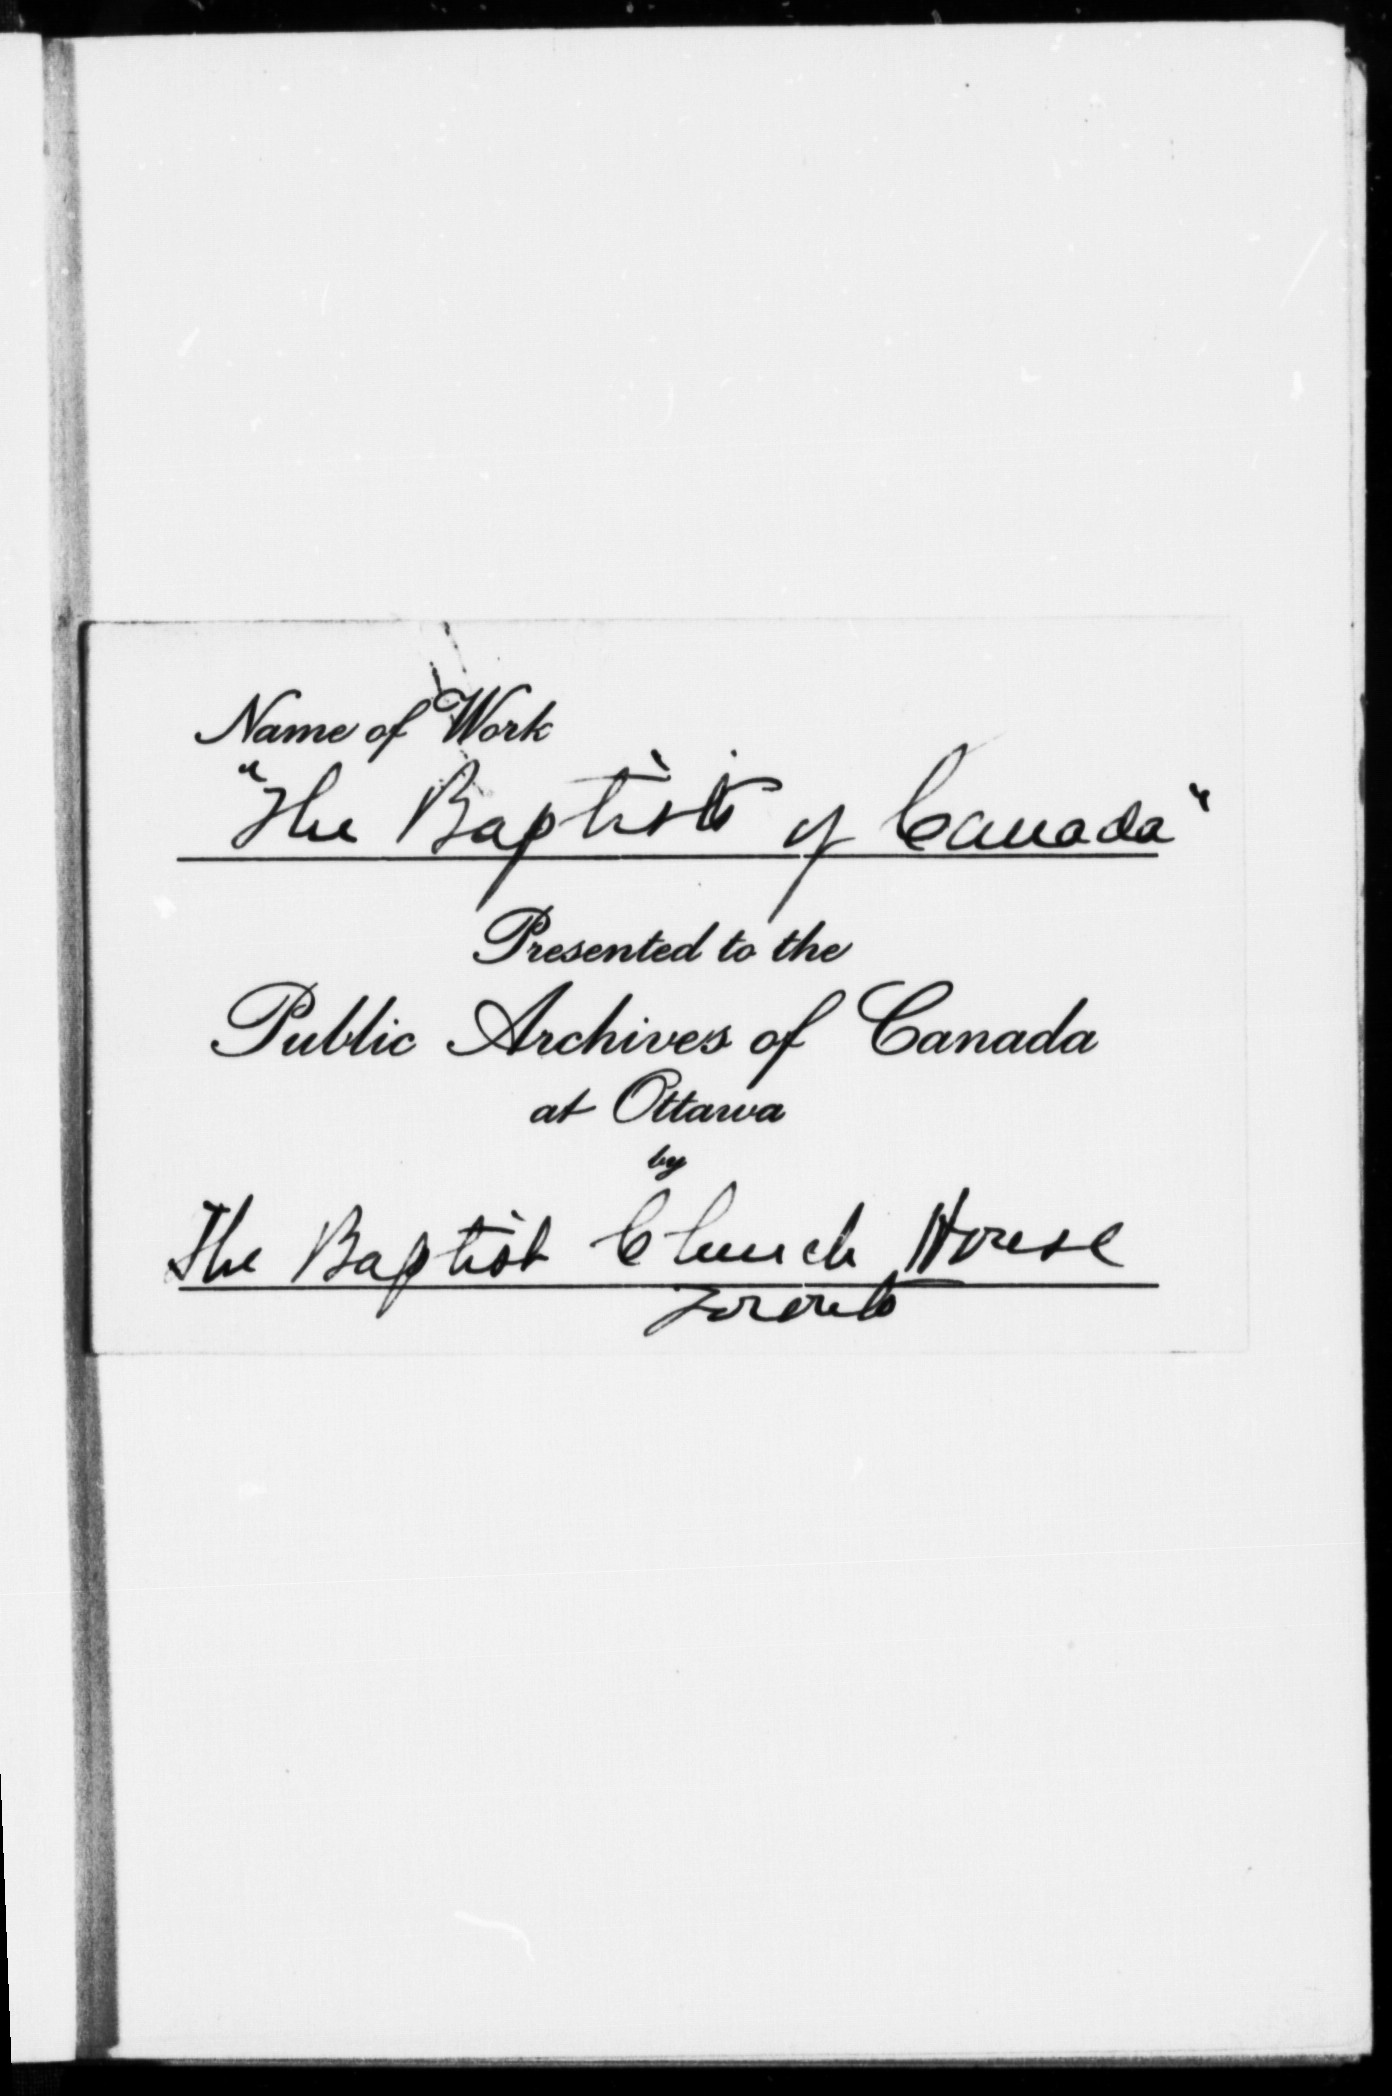 Name of Work
"The Baptists of Canada"
Presented to the
Public Archives of Canada
at Ottawa
by
The Baptist Church House
Toronto